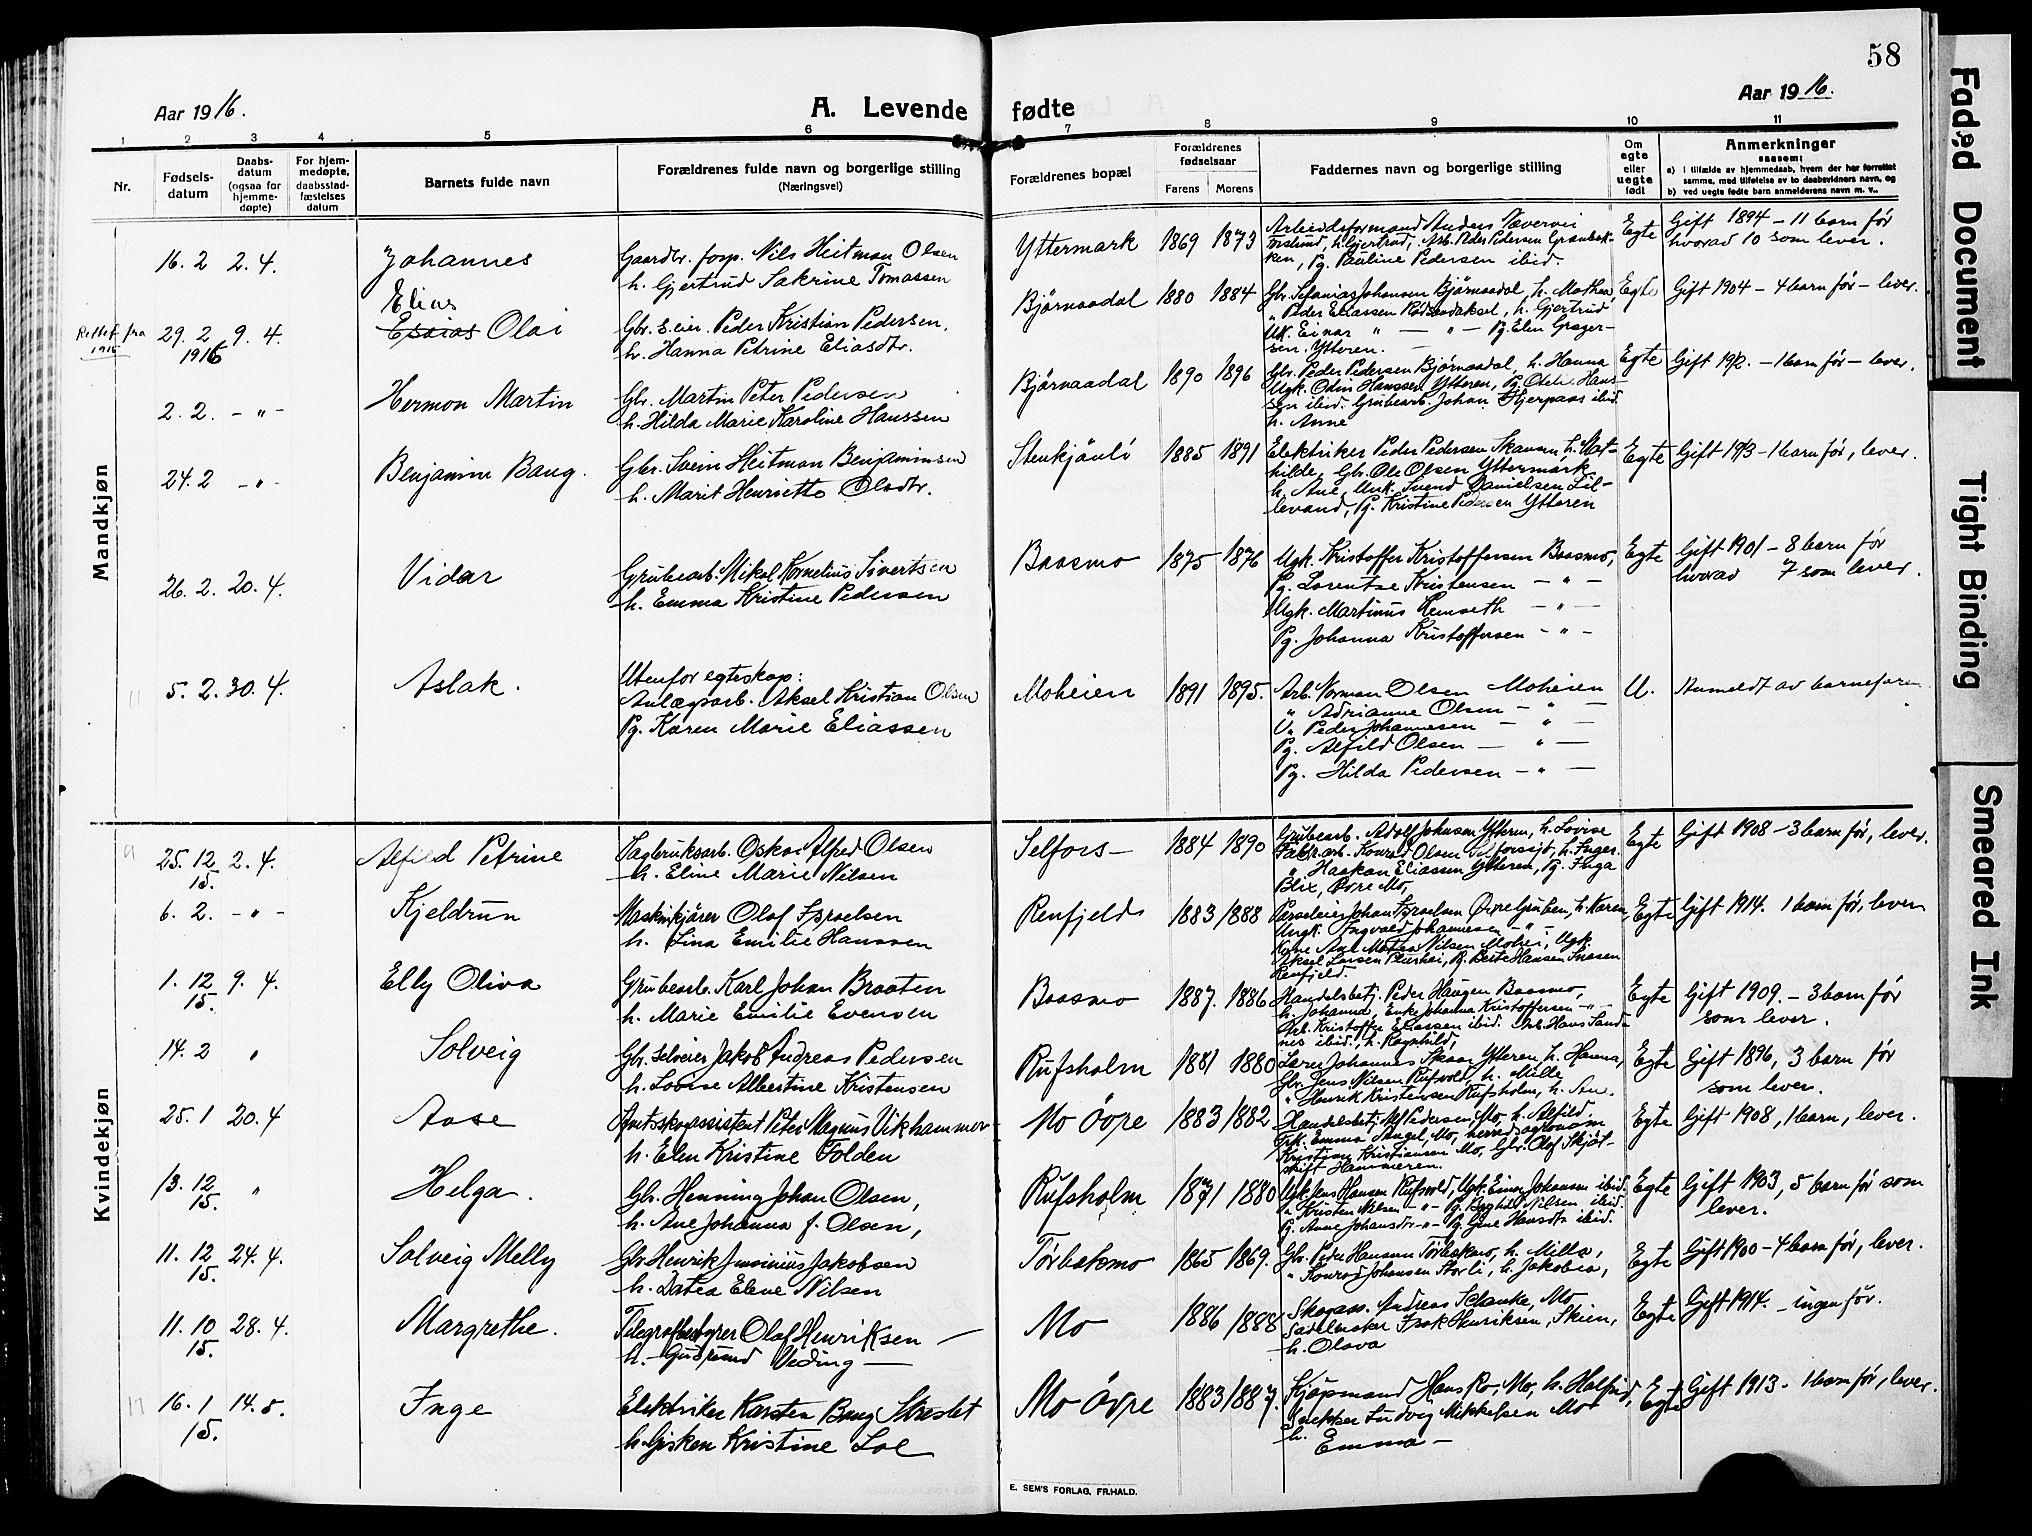 58
Aar 1916.
A. Levende
fødte
Aar 1916.
1 2 3 4 5 6 7 8 9 10 11
Nr.
Fødsels-
datum
Daabs-
datum
(ogsaa for
hjemme-
døpte)
For hjem-
medøpte,
daabsstad-
fæstelses
datum
Barnets fulde navn
Forældrenes fulde navn og borgerlige stilling
(Næringsvei)
Forældrenes bopæl
Forældrenes
fødselsaar
Farens Morens
Faddernes navn og borgerlige stilling
Om
egte
eller
uegte
født
Anmerkninger
saasom:
a) i tilfælde av hjemmedaab, hvem der har forrettet
samme, med tilføielse av to daabsvidners navn, og
b) ved uegte fødte barn anmelderens navn m. v..
Mandkjøn
16. 2 2. 4. Johannes
Gaardbr. forp. Nils Heitman Olsen
h. Gjertrud Sakrine Tomassen
Yttermark 1869 1873
Arbeidsformand Anders Navervei
h. Gjertrud, Arb. Peder Pedersen Granbæk-
ken, Pg. Pauline Pedersen ibid.
Egte Gift 1894 - 11 barn før
hvorad 10 som lever.
Rettet fra
1915
29. 2 9. 4.
1916
Elias
Esaias Olai
Gbr. s.eier. Peder Kristian Pedersen,
h. Hanna Petrine Eliasdtr.
Bjørnaadal 1880 1884
Gbr. Sefanias Johansen Bjørnaadal, h. Mathea,
" Peder Eliassen Rødsandaksel, h. Gjertrud
Uk. Einar " — " — Pg. Elen Greger-
sen, Ytteren.
Egte Gift 1904 - 4 barn før - lever.
2. 2. - " - Hermon Martin
Gbr. Martin Peter Pedersen
h. Hilda Marie Karoline Hanssen
Bjørnaadal 1890 1896
Gbr. Peder Pedersen Bjørnaadal, h. Hanna
Ugk. Odin Hanssen Ytteren, Pg. Hans-
sen ibid. Grubearb. Johan Hjerpaas ibid.
h. Anne
Egte Gift 1912. - 1 barn før - lever.
24. 2 - " - Benjamin Baug.
Gbr. Svein Heitman Benjaminsen
h. Marit Henriette Olsdtr.
Stenkjønli 1885 1891
Elektriker Peder Pedersen Skansen, h. Mat-
hilde, Gbr. Ole Olsen Yttermark
h. Ane, Unk. Svend Danielsen Lil-
levand, Pg. Kristine Pedersen Ytteren
Egte Gift 1913 - 1 barn før, lever.
26. 2. 20. 4. Vidar
Grubearb. Nikol. Kornelius Sivertsen
h. Emma Kristine Pedersen
Baasmo 1875 1876
Ugk. Kristoffer Kristoffersen Baasmo,
Pg. Lorentse Kristensen - " -
Ugk. Martinus Remseth - " -
Pg. Johanna Kristoffersen - " -
Egte Gift 1901 - 8 barn før
hvorad 7 som lever.
11 5. 2. 30. 4. Aslak.
Utenfor egteskap:
Anlægsarb. Aksel Kristian Olsen
Pg. Karen Marie Eliassen
Moheien 1891 1895.
Arb. Norman Olsen Moheien
" Adrianne Olsen - " -
U. Peder Johannesen - " -
Pg. Alfild Olsen - " -
Pg. Hilda Pedersen - " -
U. Anmeldt av barnefaren
Kvindekjøn
9 25. 12 2. 4.
15.
Alfild Petrine
Dagbruksarb. Oskar Alfred Olsen
h. Eline Marie Nilsen
Selfors - 1884 1890
Grubearb. Adolf Johnsen Ytteren, h. Lovise
Fabr.arb. Konrad Olsen Selforslid, h. Inger.
" Haakon Eliassen Ytteren, Pg. Inga
Blix, Øvre Mo,
Egte Gift 1908 - 3 barn før, lever.
6. 2. - " - Kjeldrun
Maskinkjører Olaf Israelsen
h. Lina Emilie Hanssen
Renfjeld 1883 1888
Parseleier Johan Israelsen Øvre Gruben, h. Karen,
Ungk. Ingvald Johannesen - " -
Kone Ane Matea Nilsen Mohei, Ugk.
Aksel Larsen Plurhei, Pg. Berte Hansen
Renfjeld.
Egte Gift 1914. 1 barn før, lever
1. 12 9. 4.
15.
Elly Oliva
Grubearb. Karl Johan Braaten
h. Marie Emilie Evensen
Baasmo 1887. 1886
Handelsbetj. Peder Haugen Baasmo,
h. Johanna, Enke Johanna Kristoffersen - " -
Arb. Kristoffer Eliassen ibid. Arb. Hans Sand-
nes ibid., h. Ragnhild,
Egte Gift 1909. - 3 barn før
som lever.
14. 2 " Solveig
Gbr. Selveier Jakob Andreas Pedersen
h. Lovise Albertine Kristensen
Rufsholm 1881 1880
Lærer Johannes Skaar Ytteren, h. Hanna,
Gbr. Jens Nilsen Rufvold, h. Mille
" Henrik Kristensen Rufsholm, h. An.
Egte Gift 1896, 3 barn før
som lever.
25. 1 20. 4 Aase
Amtsskogassistent Peter Magnus Vikhammer
h. Elen Kristine Folden
Mo Övre 1883 1882
Handelsbetj. M Pedersen Mo, h. Alfild.
Frk. Emma Mo, herredsagronom
Kristian Kristiansen Mo, Gbr. Olaf Skjøt-
skift Hammeren.
Egte Gift 1908, 1 barn, lever.
13. 12 "
15.
Helga.
Gbr. Henning Johan Olsen,
h. Ane Johanna f. Olsen,
Rufsholm 1871 1880
Ugk. Jens Hansen Rufvold, Ugk. Einar Johansen ibid.
" Kristen Nilsen - " - Pg. Borghild Nilsen ibid.
Pg. Anne Johansdtr - " - Pg. Gine Hansdtr ibid.
Egte Gift 1903, 5 barn før som
lever.
11. 12 24. 4.
15.
Solveig Melly
Gbr. Henrik Jakobsen
h. Datea Elene Nilsen
Tørbekmo 1865 1869.
Gbr. Peder Hansen Tørbekmo, h. Milla,
" Konrad Johansen Storli, h. Jakobea,
Egte Gift 1900 - 4 barn før, lever.
11. 10 28. 4.
15.
Margrethe.
Telegrafbestyrer Olaf Henriksen —
h. - Gudrund Veding —
Mo 1886 1888
Skogass. Andreas Schanke, Mo
Sadelmaker Isak Henriksen, Skien,
h. Olava
Egte Gift 1914. - ingen før.
17 16. 1 14. 5.
15.
Inge
Elektriker Karsten Baug Skreslet
h. Gisken Kristine Loe
Mo Övre 1883 1887.
Kjøpmand Hans Ro, Mo, h. Halfrid,
Snekker Ludvig Mikkelsen Mo
h. Emma -
Egte Gift 1913 - 1 barn før, lever.
E. SEM'S FORLAG, FR.HALD.
Faded Document
Tight Binding
Smeared Ink